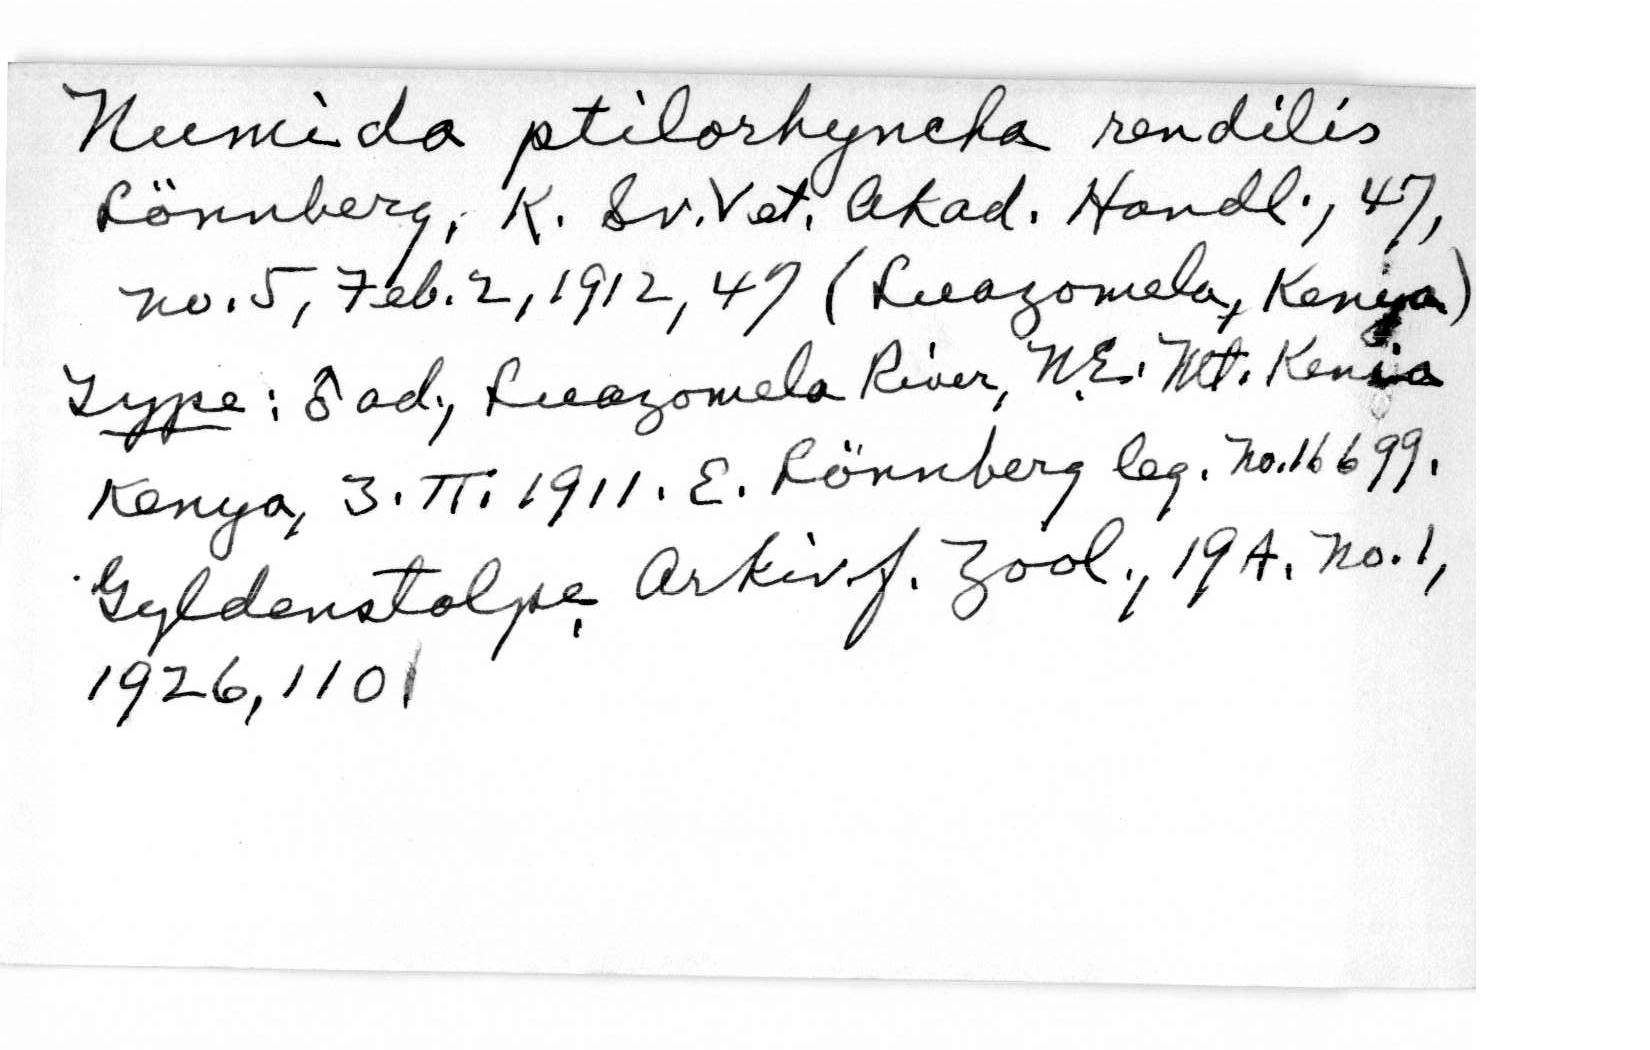 Numida ptilorhyncha rendilis
Lönnberg, K. Sv. Vet. Akad. Handl., 47,
no. 5, Feb. 2, 1912, 47 (Luazomela, Kenya)
Type: ♂ ad., Luazomela River, N.E. Mt. Kenia
Kenya, 3. II. 1911. E. Lönnberg leg. No. 16699.
Gyldenstolpe, Arkiv. f. Zool., 19 A. No. 1,
1926, 110